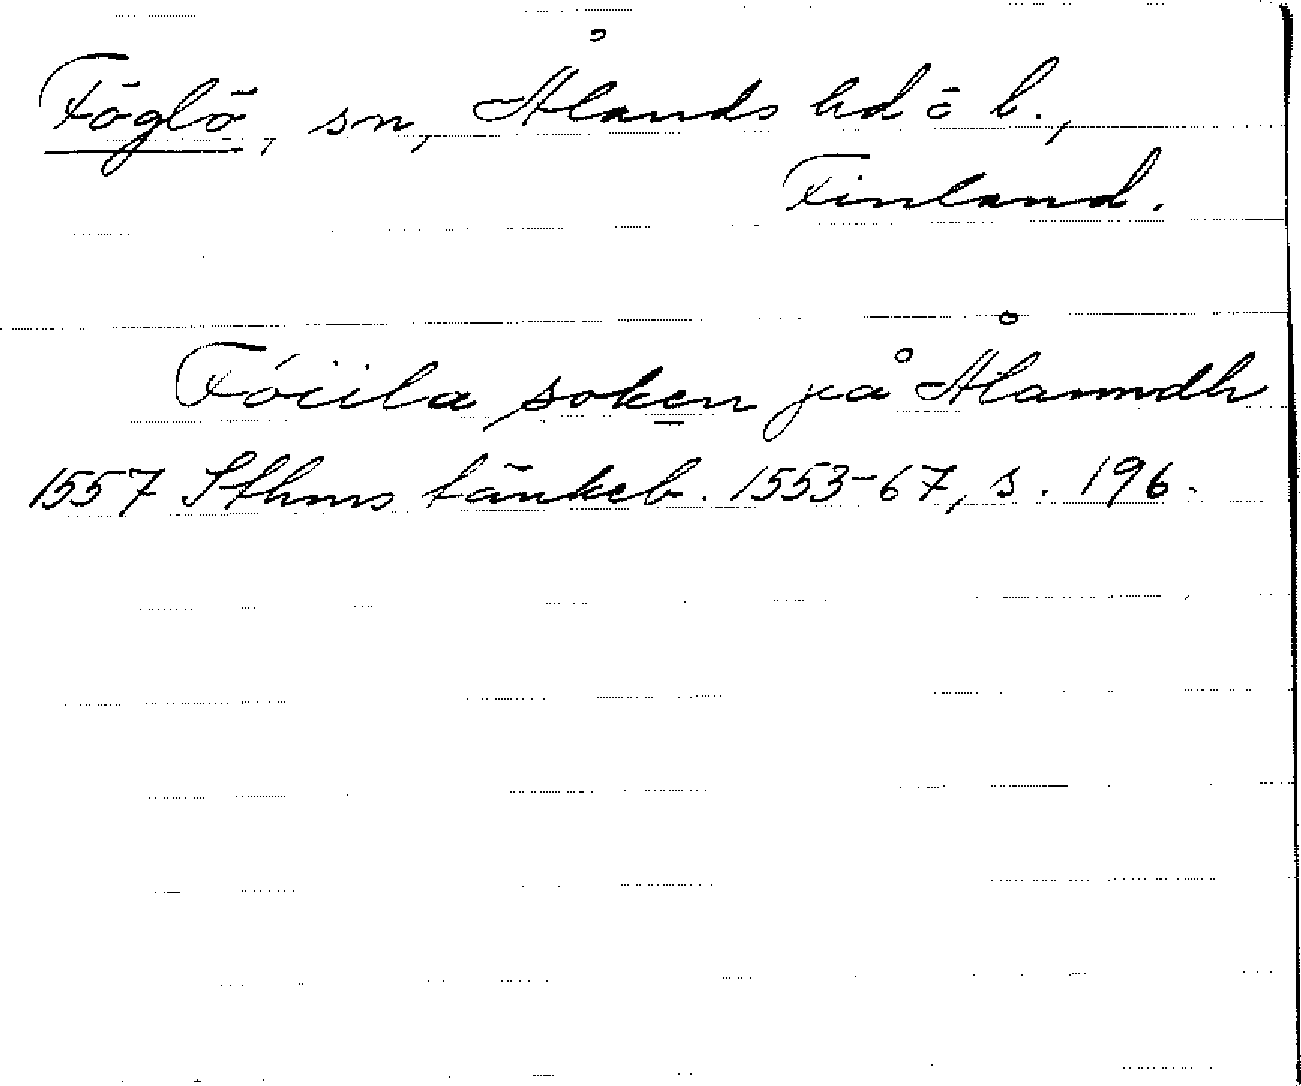 Föglö, sn, Ålands hd o l.,
Finland.
Fóiila soken på Ålanndh
1557 Sthms tänkeb. 1553-67, s. 196.